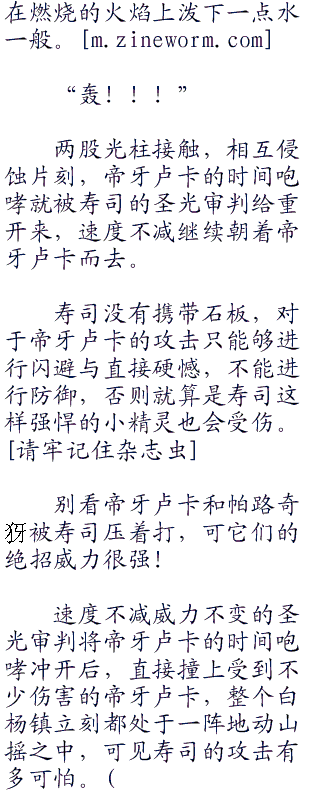 在燃烧的火焰上泼下一点水
一般。[m.zineworm.com]
“轰！！！”
两股光柱接触，相互侵
蚀片刻，帝牙卢卡的时间咆
哮就被寿司的圣光审判给重
开来，速度不减继续朝着帝
牙卢卡而去。
寿司没有携带石板，对
于帝牙卢卡的攻击只能够进
行闪避与直接硬憾，不能进
行防御，否则就算是寿司这
样强悍的小精灵也会受伤。
[请牢记住杂志虫]
别看帝牙卢卡和帕路奇
犽被寿司压着打，可它们的
绝招威力很强！
速度不减威力不变的圣
光审判将帝牙卢卡的时间咆
哮冲开后，直接撞上受到不
少伤害的帝牙卢卡，整个白
杨镇立刻都处于一阵地动山
摇之中，可见寿司的攻击有
多可怕。（